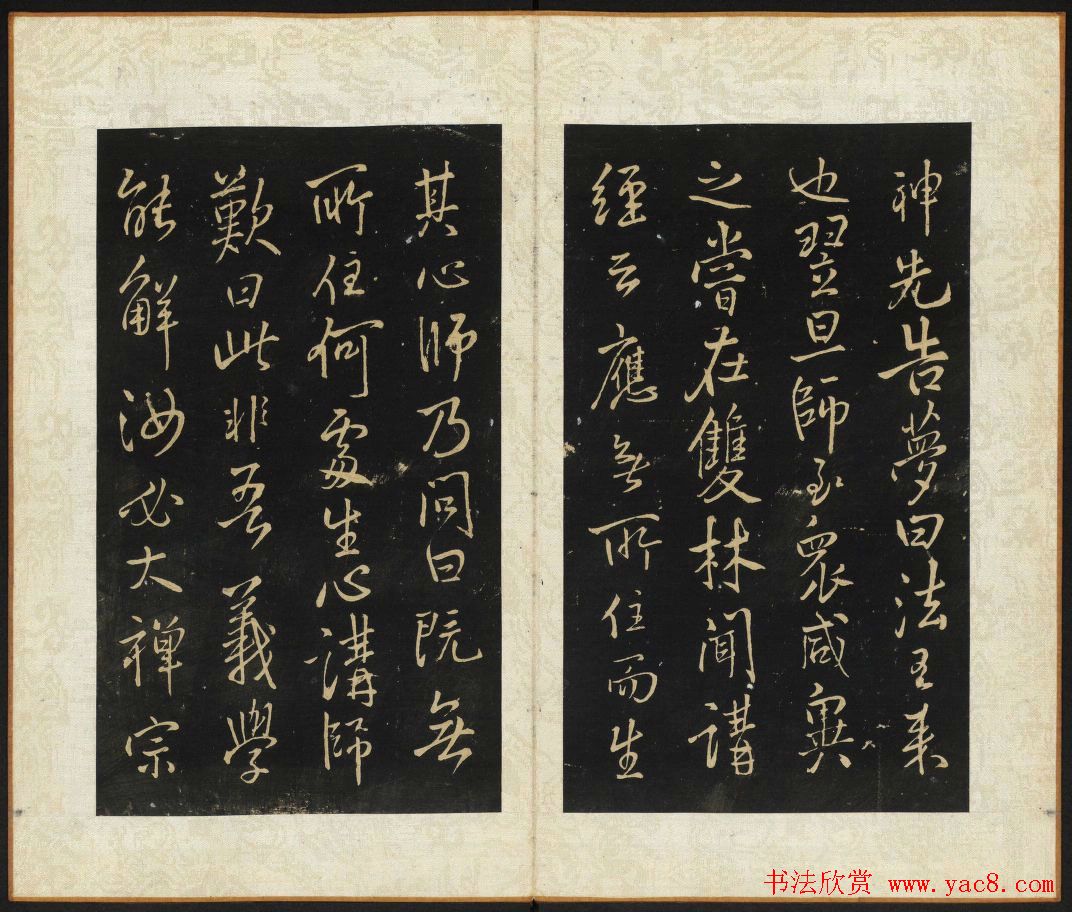 神先告夢曰法王來
也翌旦師至衆咸異
之嘗在雙林聞講
經云應無所住而生
其心師乃問曰既無
所住何處生心講師
歎曰此非吾義學
能解汝必大禪宗
书法欣赏 www.yac8.com